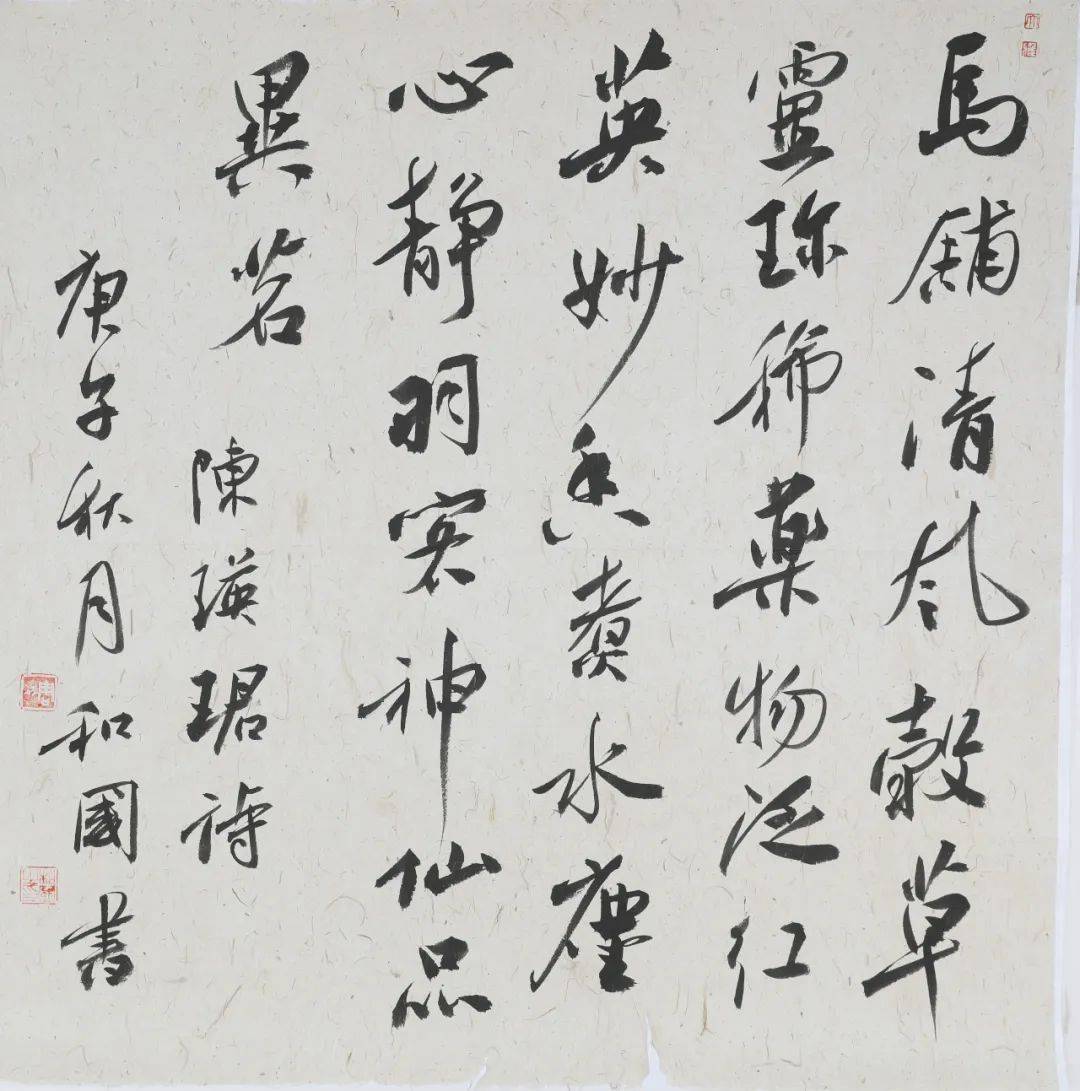 馬鋪清風穀草
靈珍稀藥物泛紅
英妙香煮水塵
心靜羽客神仙品
異茗
陳瑛珺詩
庚子秋月和國書